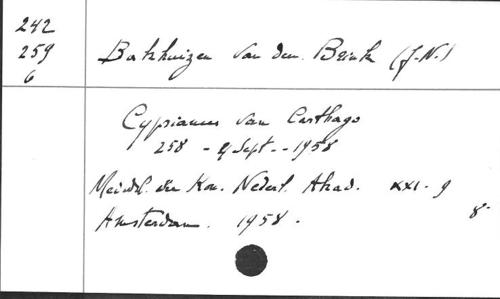 242
259
6
Bakhuizen van den Brink (J.N.)
Cyprianus van Carthago
258 - 14 Sept - 1958
Meded. der Kon. Nederl. Akad. XXI. 9
8°
Amsterdam. 1958.